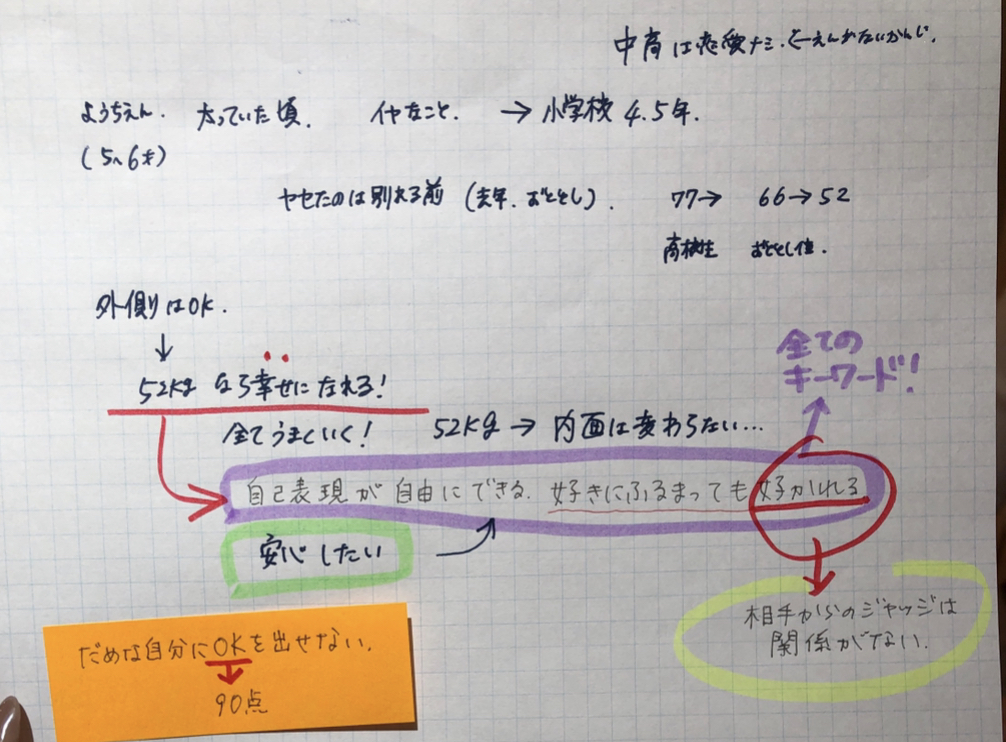 中高は恋愛ナミ.
ようちえん. 太っていた頃. イヤなこと. → 小学校 4.5年.
(5、6才)
ヤセたのは別れる前 (去年. おととし). 77→ 66→52
高校生 おととし位.
外側はOK.
↓
52Kg なら幸せになれる!
全てのキーワード!
全てうまくいく! 52Kg → 内面は変わらない...
自己表現が自由にできる. 好きにふるまっても好かれる
安心したい
相手からのジャッジは
関係がない.
だめな自分にOKを出せない.
↓
90点